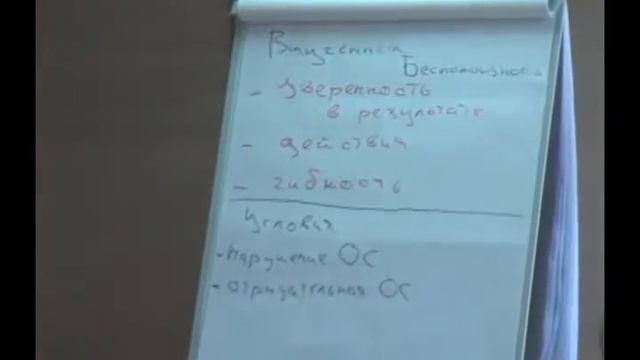 Выученная
Беспомощность
- Уверенность
в результате
- действия
- гибкость
Условия
- Нарушение ОС
- отрицательная ОС